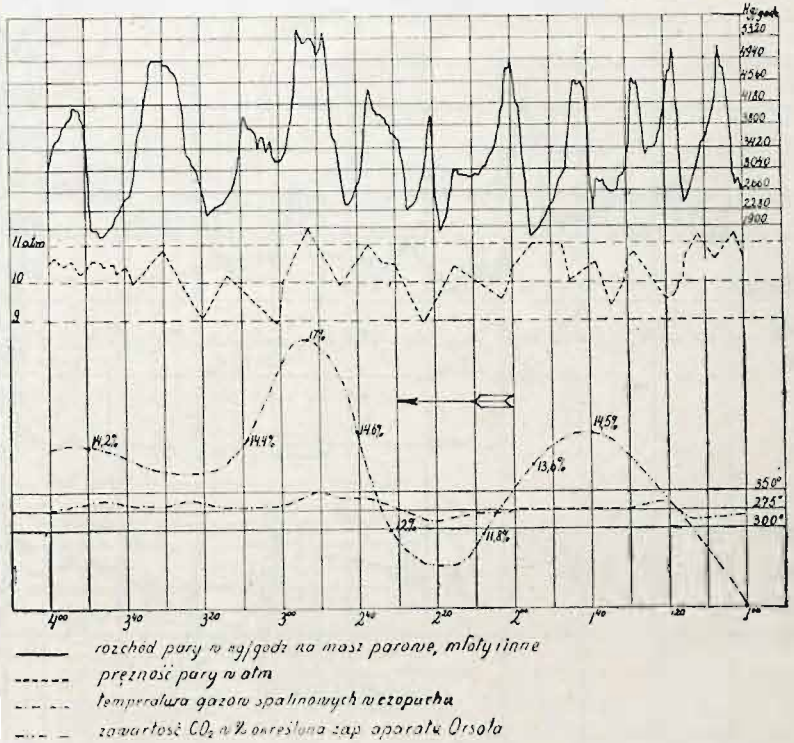 Kg/godz
5320
4940
4560
4180
3800
3420
3040
2660
2280
1900
11 atm
10
9
17%
14,2%
14.4%
14.6%
12%
11,8%
13,6%
14,5%
350°
275°
300°
4⁰⁰ 3⁴⁰ 3²⁰ 3⁰⁰ 2⁴⁰ 2²⁰ 2⁰⁰ 1⁴⁰ 1²⁰ 1⁰⁰
rozchód pary w kg/godz na masz parowe, młoty i inne
prężność pary w atm
temperatura gazów spalinowych w czopuchu
zawartość CO₂ w % określona zap aparatu Orsata